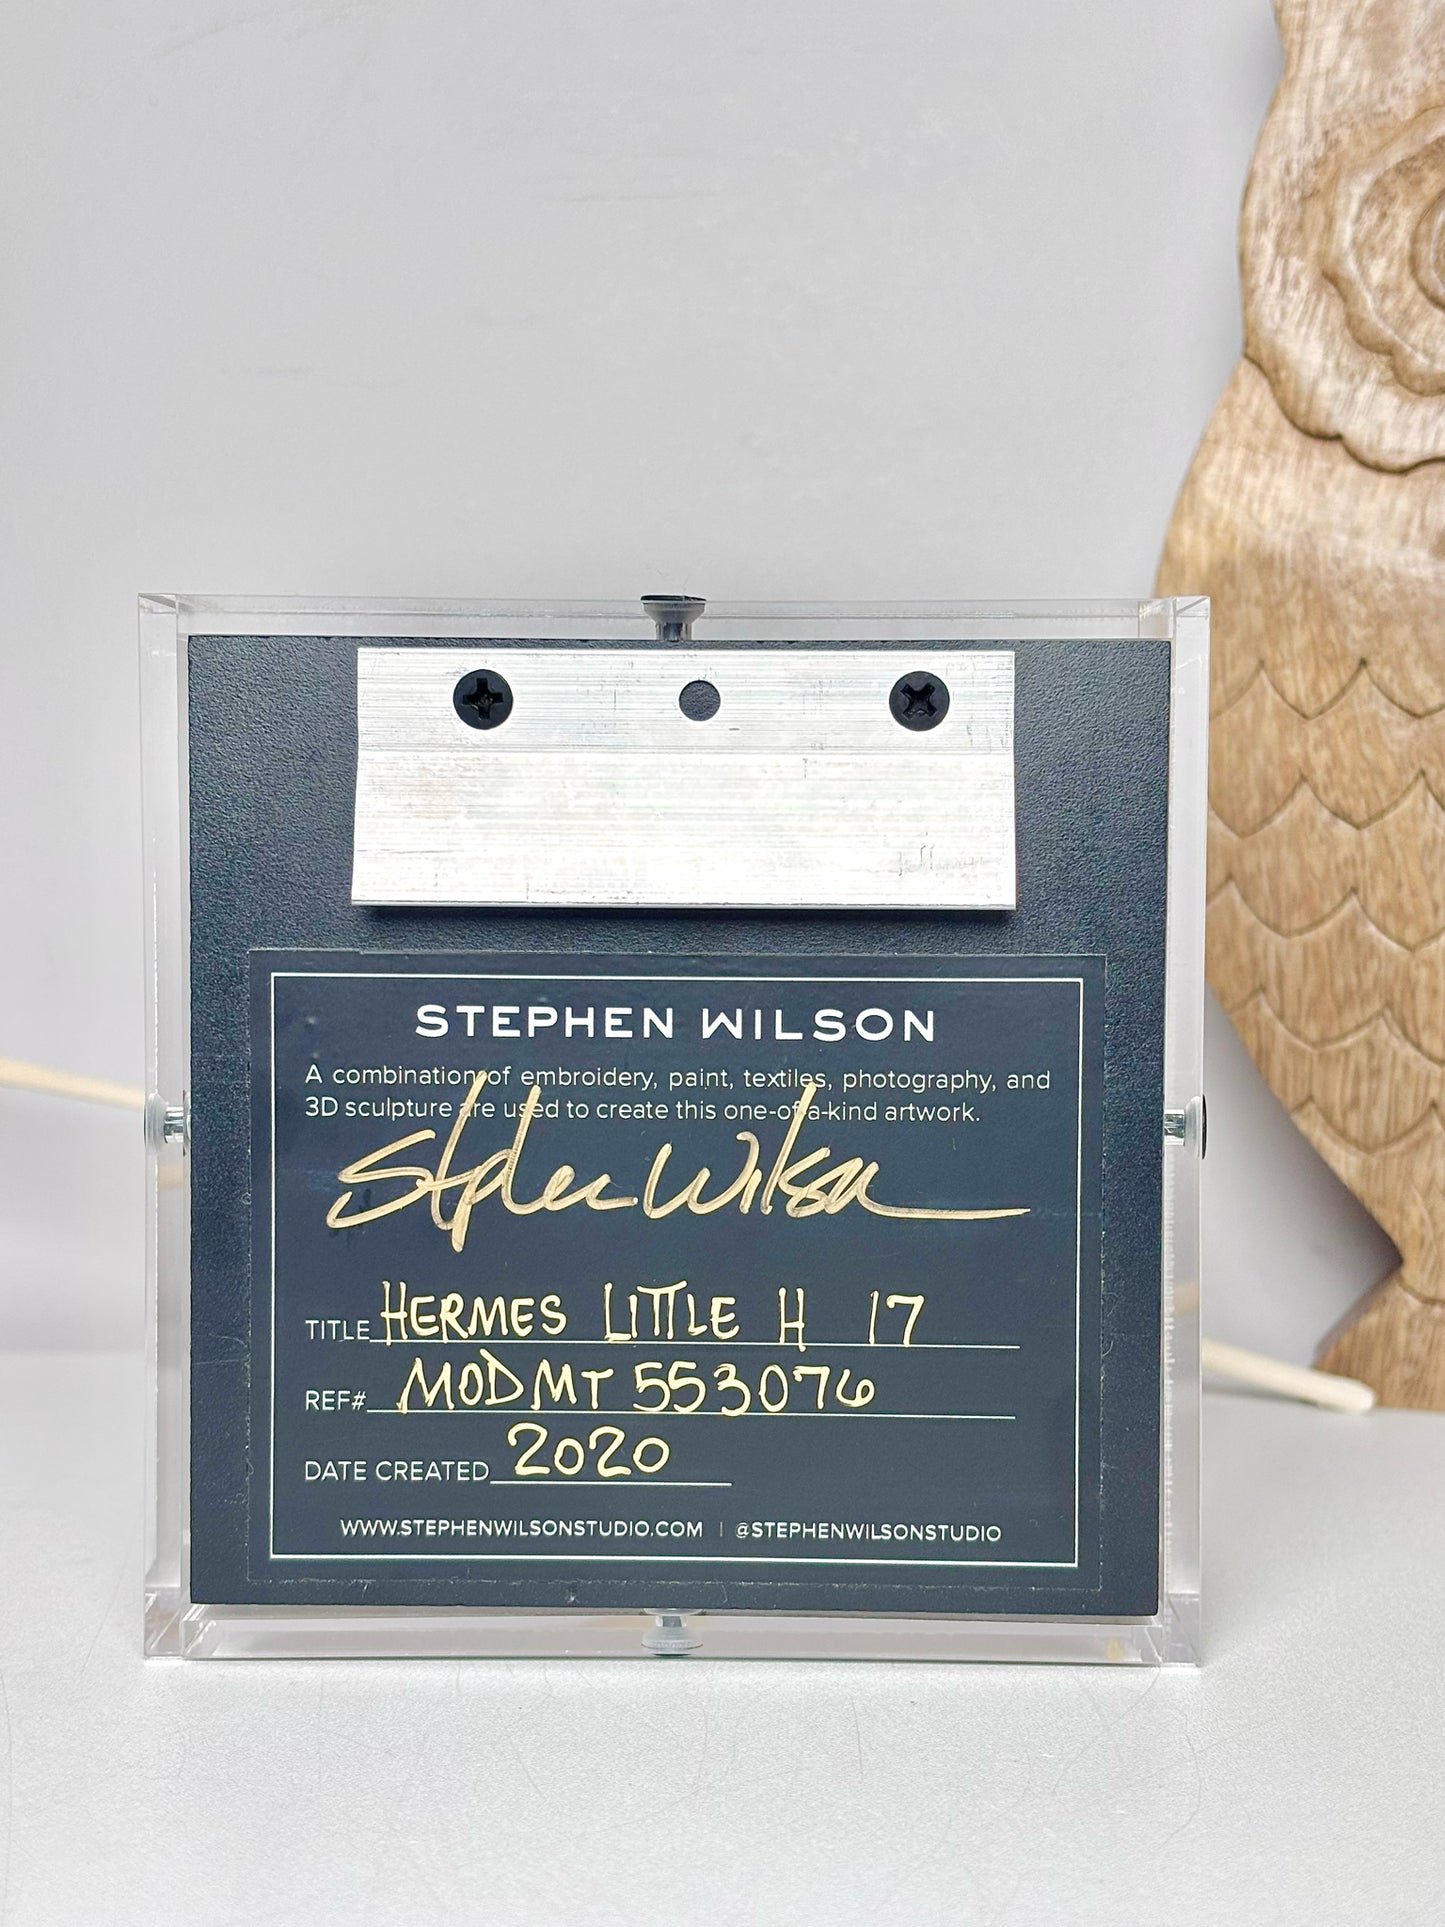 STEPHEN WILSON
A combination of embroidery, paint, textiles, photography, and
3D sculpture are used to create this one-of-a-kind artwork.
Stephen Wilson
TITLE HERMES LITTLE H 17
REF# MODMT 553076
DATE CREATED 2020
WWW.STEPHENWILSONSTUDIO.COM | @STEPHENWILSONSTUDIO